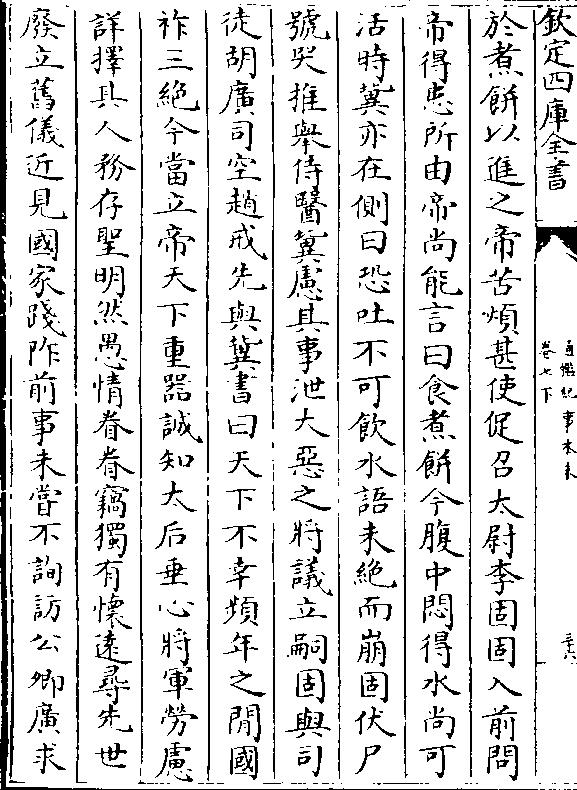 欽定四庫全書
通鑑紀事本末
卷七下
三六
於煮餅以進之帝苦煩甚使促召太尉李固固入前問
帝得患所由帝尚能言曰食煮餅今腹中悶得水尚可
活時冀亦在側曰恐吐不可飲水語未絕而崩固伏尸
號哭推舉侍醫冀慮其事泄大惡之將議立嗣固與司
徒胡廣司空趙戒先與冀書曰天下不幸頻年之閒國
祚三絕今當立帝天下重器誠知太后垂心將軍勞慮
詳擇其人務存聖明然愚情眷眷竊獨有懷遠尋先世
廢立舊儀近見國家踐阼前事未嘗不詢訪公卿廣求